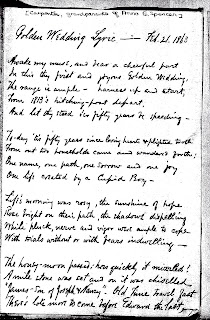 (Carpenter, grandparents of Anna C. Spencer)
Golden Wedding Lyric — Feb. 21, 1863
Awake my muse, and bear a cheerful part
In this thy first and joyous Golden Wedding.
The range is ample - harness up and start,
From 1813's hitching-post depart.
And let thy steed in fifty years be speeding -
To-day 'tis fifty years since loving hearts uplifted
From out two households came and
One name, one path, one sorrow and one joy
One life erected by a Cupid Boy -
Life's morning was rosy, the sunshine of hope
Rose bright on their path, the shadows dispelling
While pluck, nerve and vigor was ample to cope
With trials without or with fears indwelling -
The honey-moon passed; how quickly it
A mile stone was set and on it was chiselled
"James - Son of Joseph & Nancy". Old Time travels fast
There's lots more to come before Edward the last